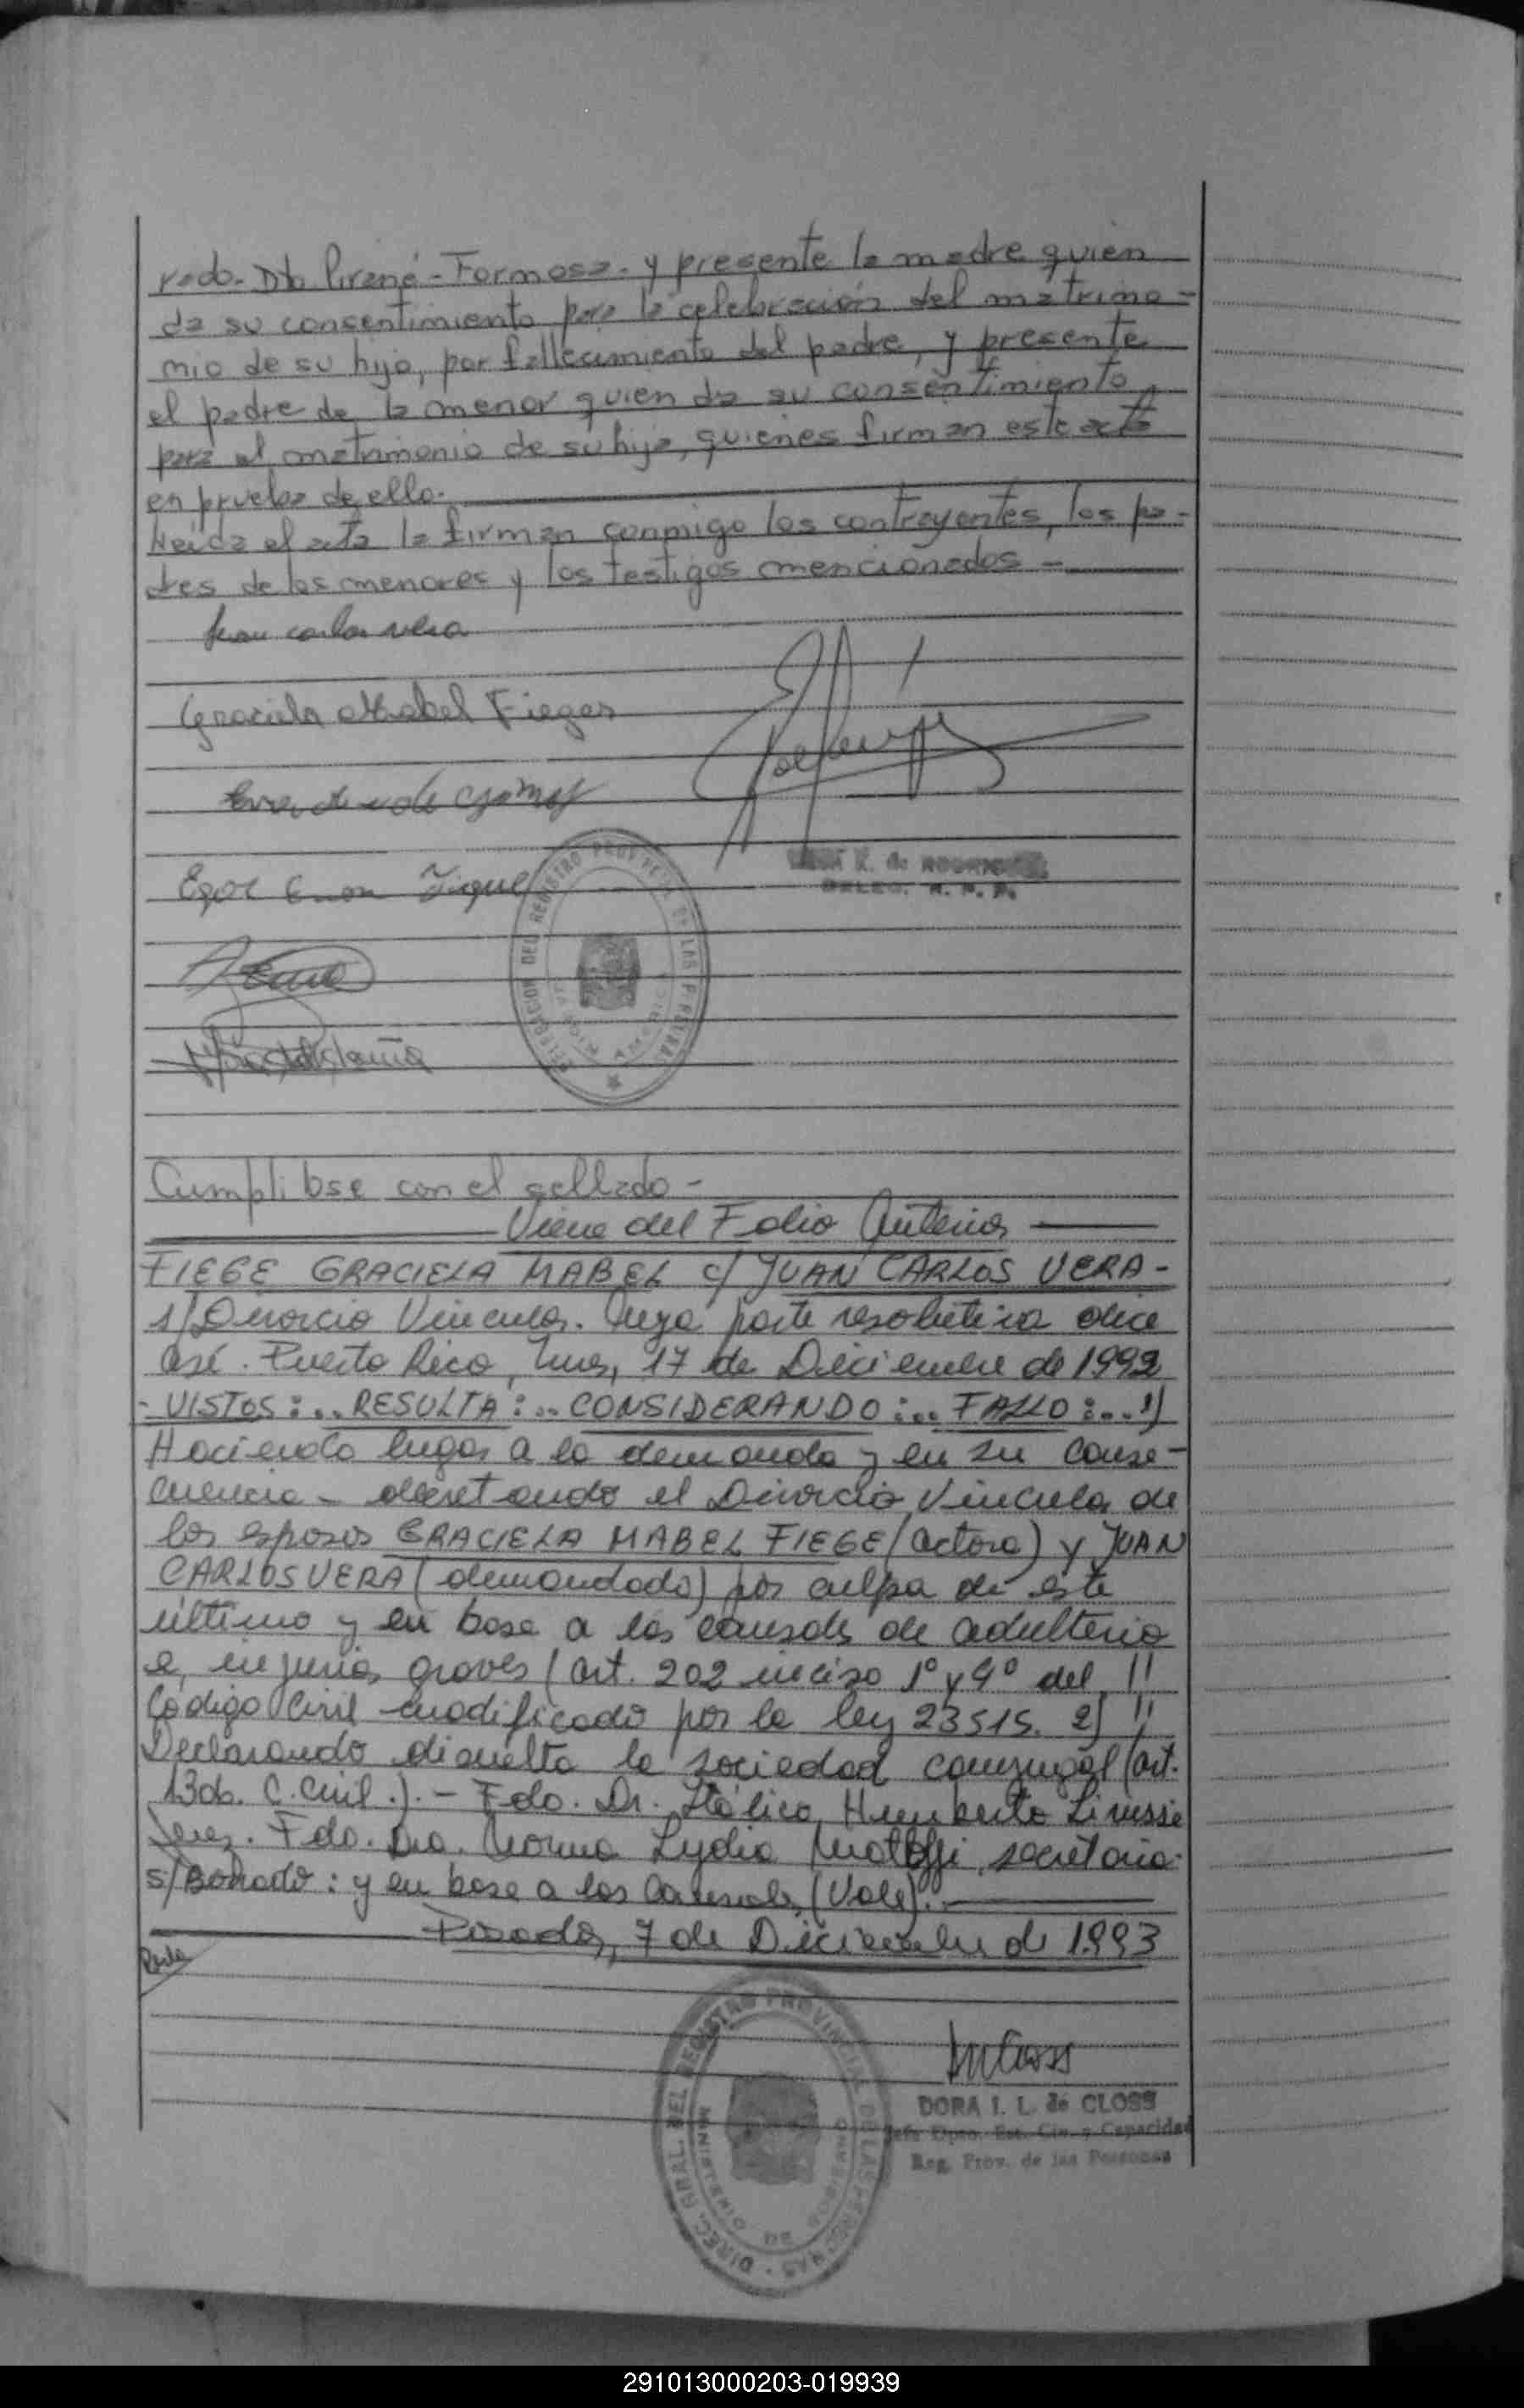 rado. Dto Pirané - Formosa. y presente la madre quien
da su consentimiento para la celebración del matrimo-
nio de su hijo, por fallecimiento del padre, y presente
el padre de la menor quien da su consentimiento
para el matrimonio de su hija, quienes firman este acta
en prueba de ello.
Leida el acta la firman conmigo los contrayentes, los pa-
dres de los menores y los testigos mencionados -
Juan carlos vera
Graciela Mabel Fieger
de Gomez
K. de RODRIGUEZ
DELEG. R. P. P.
DELEGACION DEL REGISTRO PROVINCIAL DE LAS PERSONAS
Cumplibse con el sellado -
Viene del Folio Anterior
FIEGE GRACIELA MABEL c/ JUAN CARLOS VERA -
s/Divorcio Vincular. Cuya parte resolutiva dice
así. Puerto Rico, Mnes, 17 de Diciembre de 1992
- VISTOS:.. RESULTA:.. CONSIDERANDO:.. FALLO:.. 1)
Haciendo lugar a la demanda y en su conse-
cuencia - decretando el Divorcio Vincular de
los esposos GRACIELA MABEL FIEGE (actora) y JUAN
CARLOS VERA (demandado) por culpa de este
último y en base a las causales de adulterio
e injurias graves (art. 202 inciso 1° y 4° del !!
Código Civil modificado por la ley 23515. 2) !!
Declarando disuelta la sociedad conyugal (art.
1306. C. Civil.). - Fdo. Dr. Itálico Humberto
Juez. Fdo. Dra. Norma Lydia secretaria.
s/Borrado: y en base a las causales (Vale).
Posadas, 7 de Diciembre de 1993
DIREC. GRAL. DEL REGISTRO PROVINCIAL DE LAS PERSONAS
MINISTERIO DE
MISIONES
DORA I. L. de CLOSS
Jefe Dpto. Est. Civ. y Capacidad
Reg. Prov. de las Personas
291013000203-019939